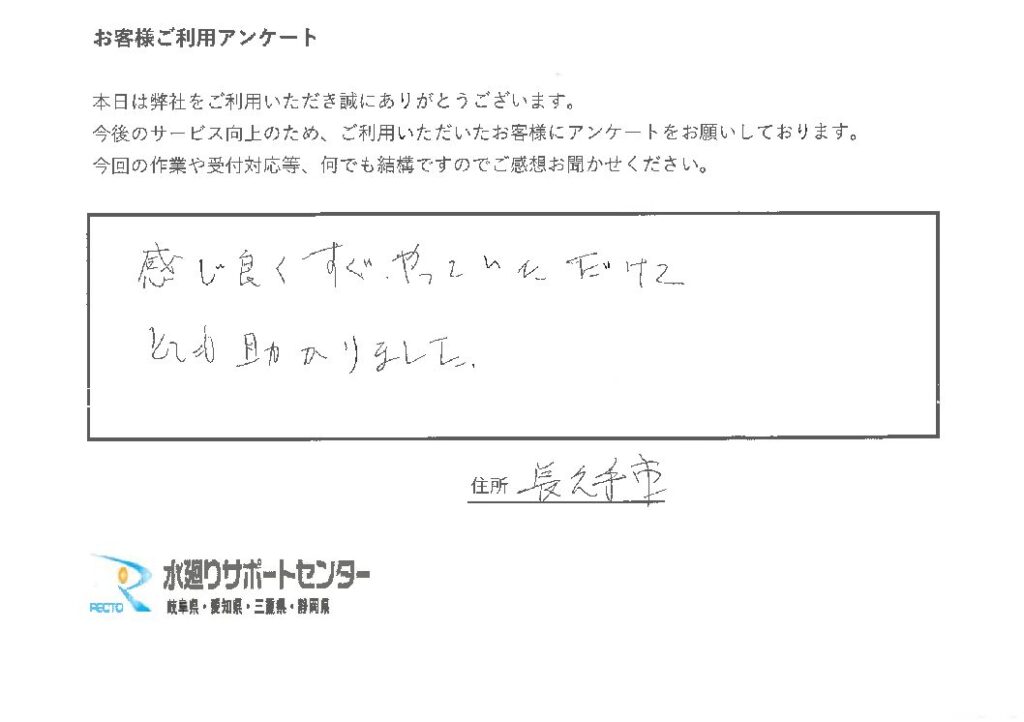 お客様ご利用アンケート
本日は弊社をご利用いただき誠にありがとうございます。
今後のサービス向上のため、ご利用いただいたお客様にアンケートをお願いしております。
今回の作業や受付対応等、何でも結構ですのでご感想お聞かせください。
感じ良くすぐやっていただけて
とても助かりました。
住所 長久手市
RECTO 水廻りサポートセンター
岐阜県・愛知県・三重県・静岡県